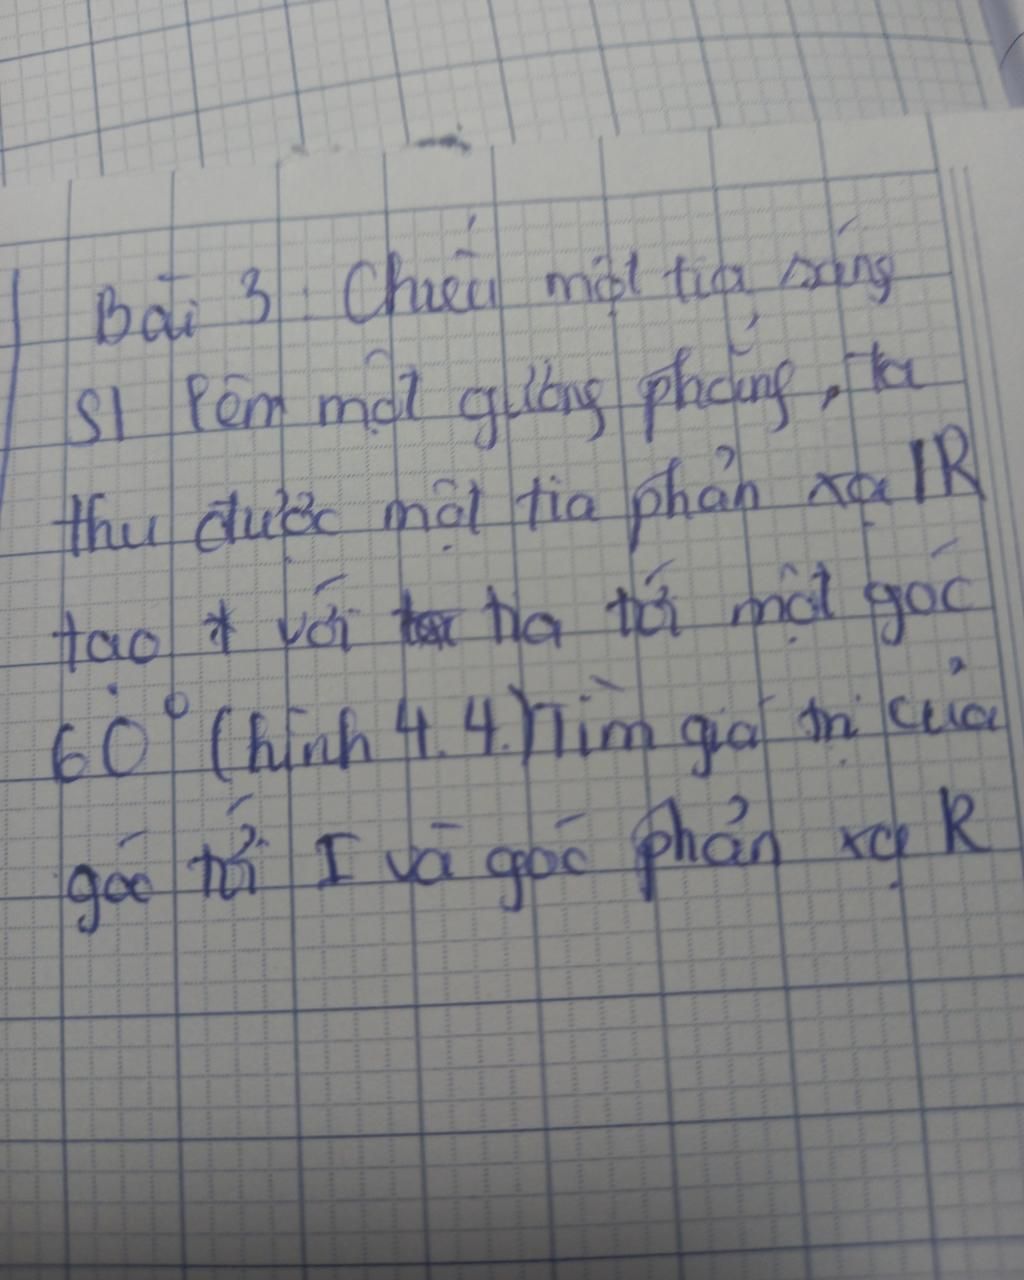 Bài 3: Chiếu một tia sáng
SI lên một gương phẳng, ta
thu được một tia phản xạ IR
tạo với tia tới một góc
60° (hình 4.4.) Tìm giá trị của
góc tới I và góc phản xạ R